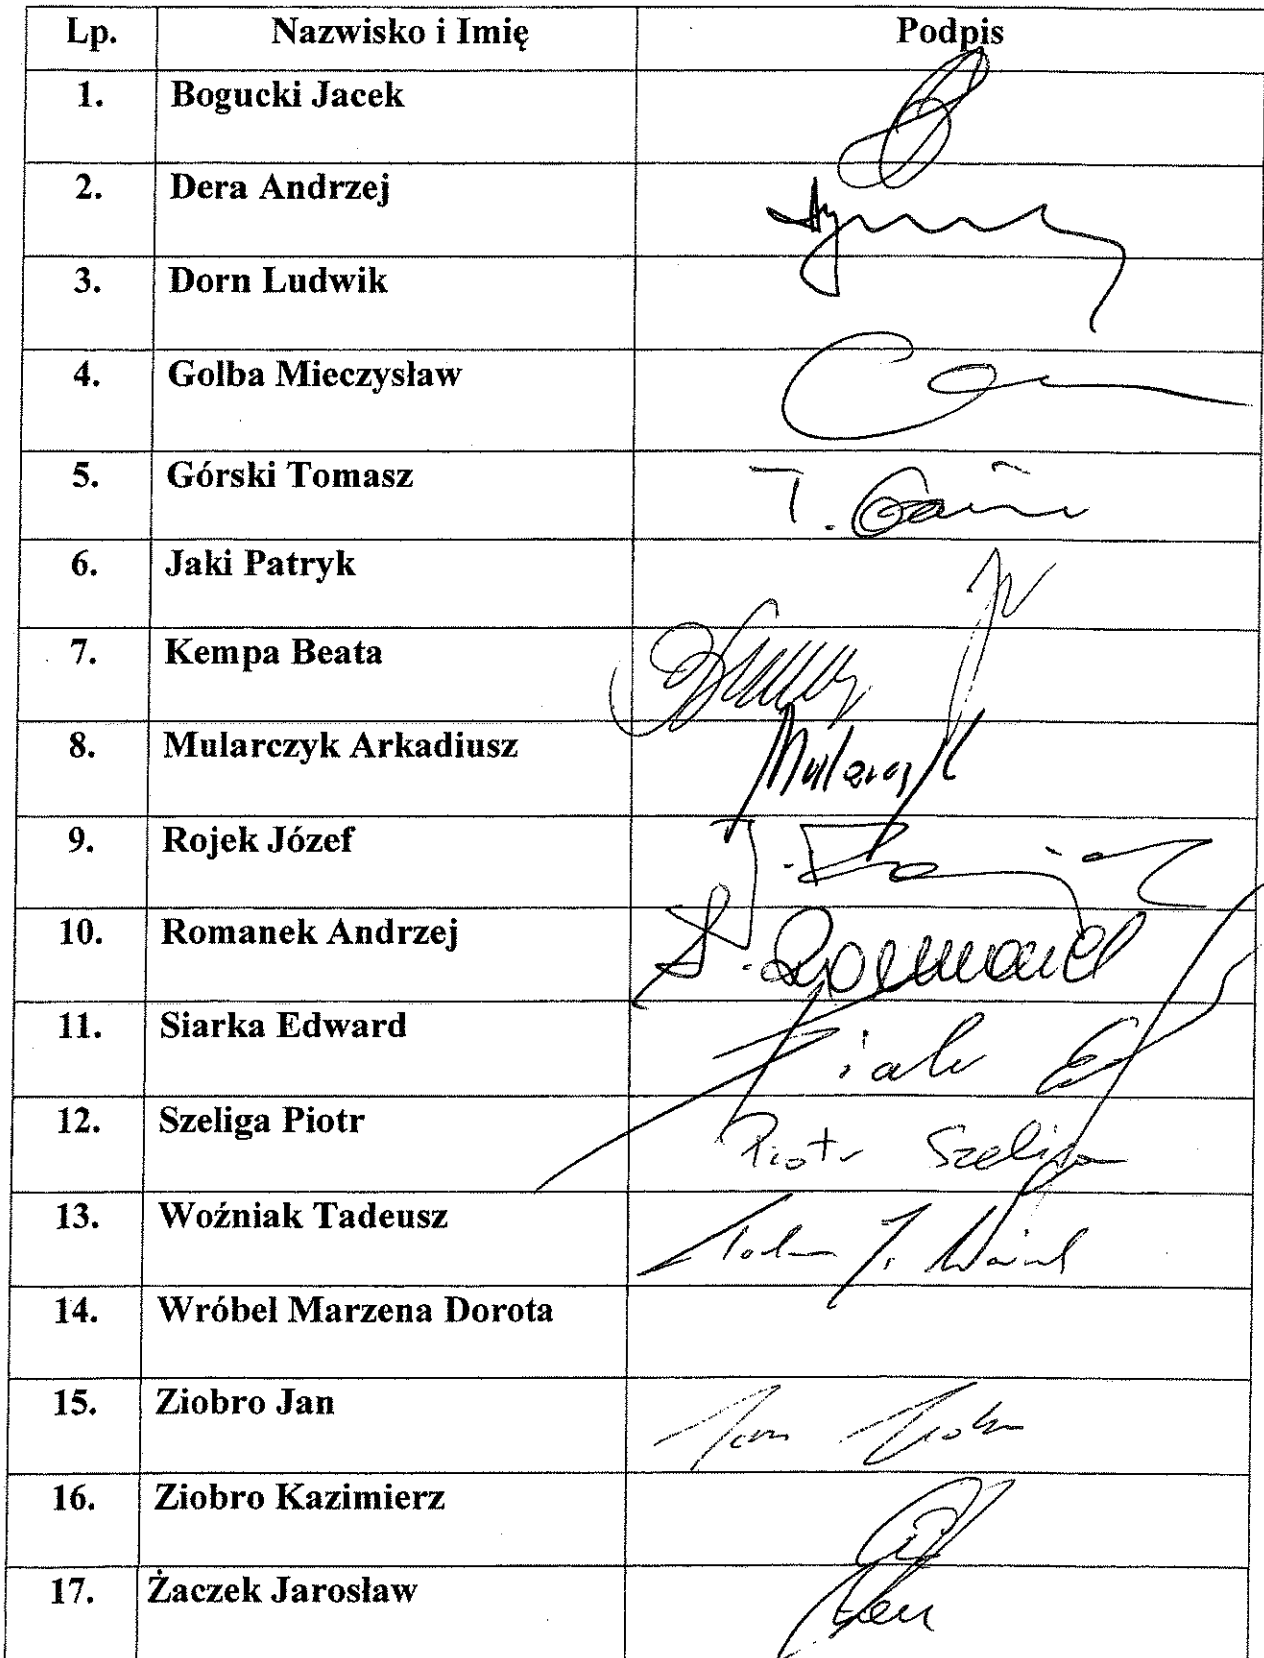 Lp. Nazwisko i Imię Podpis
1. Bogucki Jacek
2. Dera Andrzej
3. Dorn Ludwik
4. Golba Mieczysław
5. Górski Tomasz T.
6. Jaki Patryk
7. Kempa Beata
8. Mularczyk Arkadiusz Mularczyk
9. Rojek Józef J.
10. Romanek Andrzej A. Romanek
11. Siarka Edward
12. Szeliga Piotr Piotr Szeliga
13. Woźniak Tadeusz
14. Wróbel Marzena Dorota
15. Ziobro Jan Jan Ziobro
16. Ziobro Kazimierz
17. Żaczek Jarosław